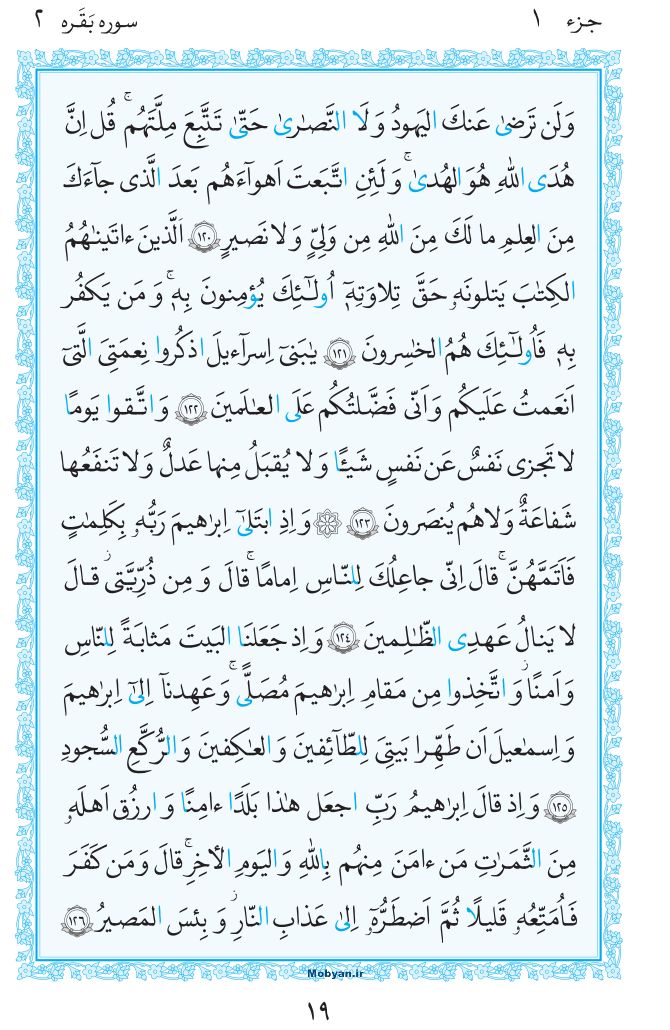 جزء ١ سوره بَقَره ٢
وَلَن تَرضىٰ عَنكَ اليَهودُ وَلَا النَّصارىٰ حَتّىٰ تَتَّبِعَ مِلَّتَهُم ۗ قُل اِنَّ
هُدَى اللّٰهِ هُوَ الهُدىٰ ۗ وَلَئِنِ اتَّبَعتَ اَهوآءَهُم بَعدَ الَّذى جآءَكَ
مِنَ العِلمِ ما لَكَ مِنَ اللّٰهِ مِن وَلِىٍّ وَلا نَصيرٍ ﴿١٢٠﴾ اَلَّذينَ ءاتَينٰهُمُ
الكِتٰبَ يَتلونَهٗ حَقَّ تِلاوَتِهٖٓ اُولٰٓئِكَ يُؤمِنونَ بِهٖ ۗ وَمَن يَكفُر
بِهٖ فَاُولٰٓئِكَ هُمُ الخٰسِرونَ ﴿١٢١﴾ يٰبَنىٓ اِسرآءيلَ اذكُروا نِعمَتِىَ الَّتىٓ
اَنعَمتُ عَلَيكُم وَاَنّى فَضَّلتُكُم عَلَى العٰلَمينَ ﴿١٢٢﴾ وَاتَّقوا يَومًا
لا تَجزى نَفسٌ عَن نَفسٍ شَيـًٔا وَلا يُقبَلُ مِنها عَدلٌ وَلا تَنفَعُها
شَفاعَةٌ وَلا هُم يُنصَرونَ ﴿١٢٣﴾ ۞ وَاِذِ ابتَلىٰٓ اِبرٰهيمَ رَبُّهٗ بِكَلِمٰتٍ
فَاَتَمَّهُنَّ ۖ قالَ اِنّى جاعِلُكَ لِلنّاسِ اِمامًا ۖ قالَ وَمِن ذُرِّيَّتى ۖ قالَ
لا يَنالُ عَهدِى الظّٰلِمينَ ﴿١٢٤﴾ وَاِذ جَعَلنَا البَيتَ مَثابَةً لِلنّاسِ
وَاَمنًا وَاتَّخِذوا مِن مَقامِ اِبرٰهيمَ مُصَلًّى ۖ وَعَهِدنآ اِلىٰٓ اِبرٰهيمَ
وَاِسمٰعيلَ اَن طَهِّرا بَيتِىَ لِلطّآئِفينَ وَالعٰكِفينَ وَالرُّكَّعِ السُّجودِ
﴿١٢٥﴾ وَاِذ قالَ اِبرٰهيمُ رَبِّ اجعَل هٰذا بَلَدًا ءامِنًا وَارزُق اَهلَهٗ
مِنَ الثَّمَرٰتِ مَن ءامَنَ مِنهُم بِاللّٰهِ وَاليَومِ الأخِرِ ۖ قالَ وَمَن كَفَرَ
فَاُمَتِّعُهٗ قَليلًا ثُمَّ اَضطَرُّهٗٓ اِلىٰ عَذابِ النّارِ ۖ وَبِئسَ المَصيرُ ﴿١٢٦﴾
Mobyan.ir
١٩